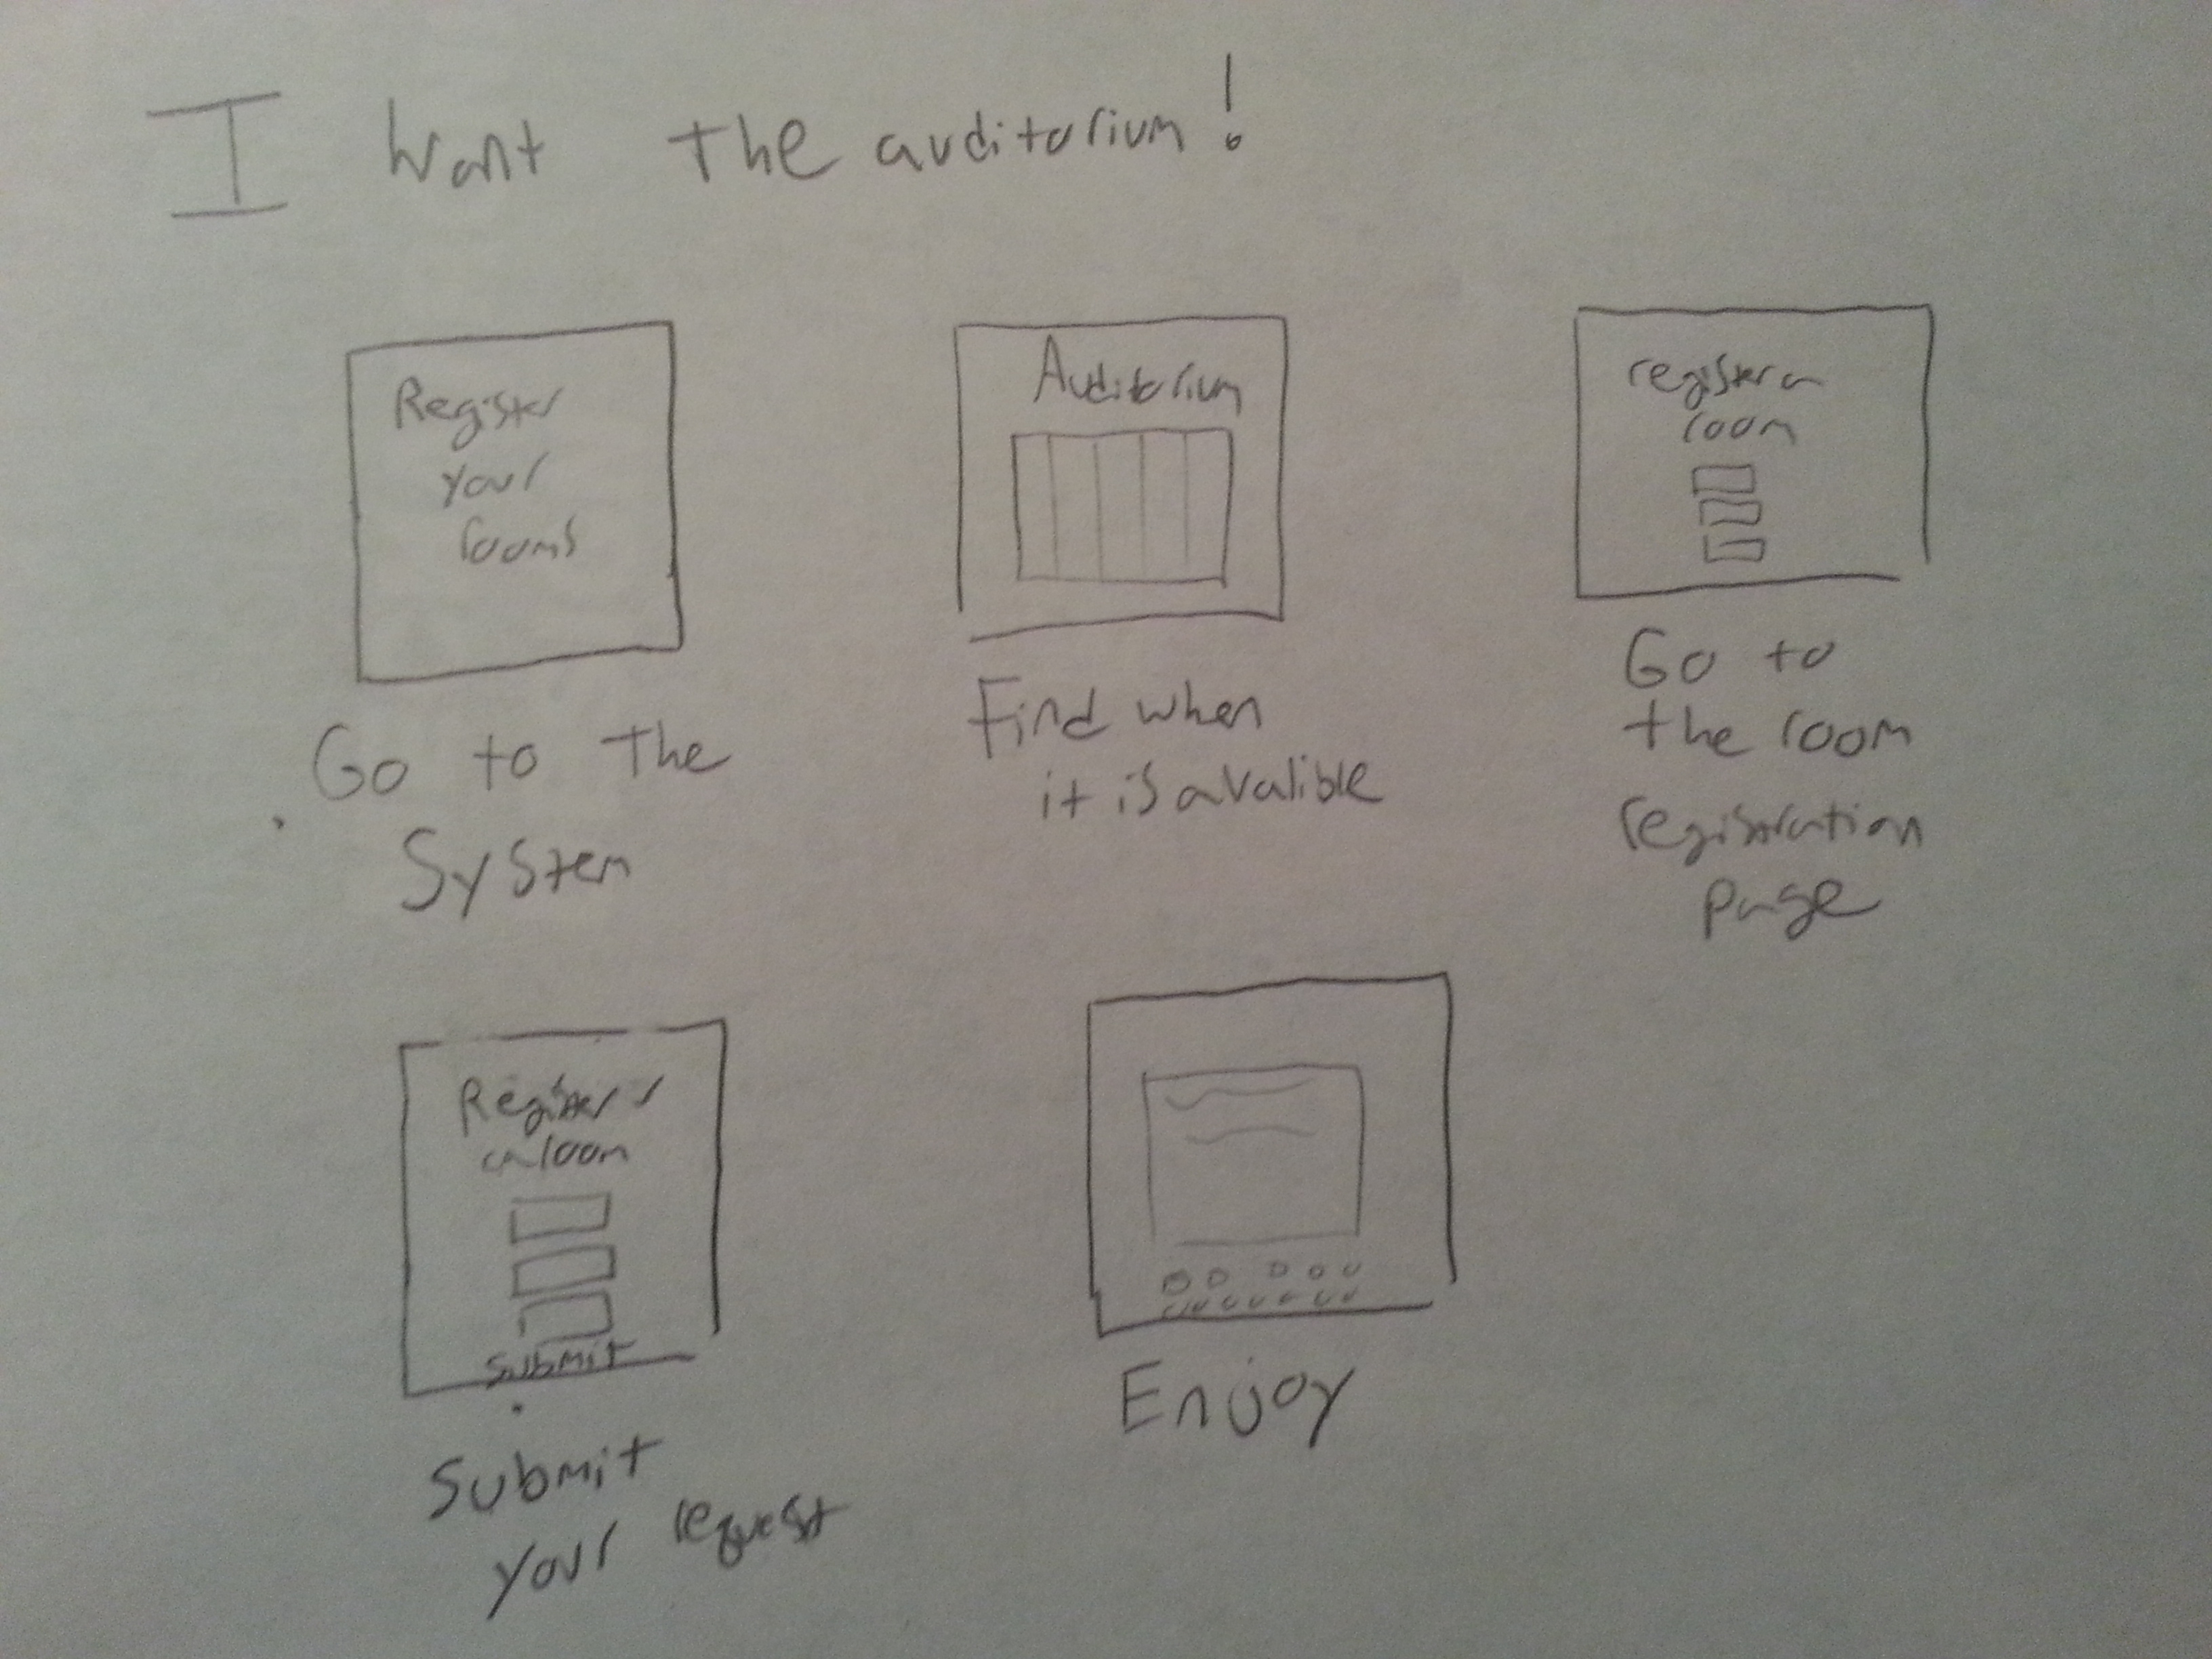 I want the auditorium!
Register
your
rooms
Go to the
System
Auditorium
Find when
it is avalible
register a
room
Go to
the room
registration
page
Register
a room
submit
Submit
your request
Enjoy